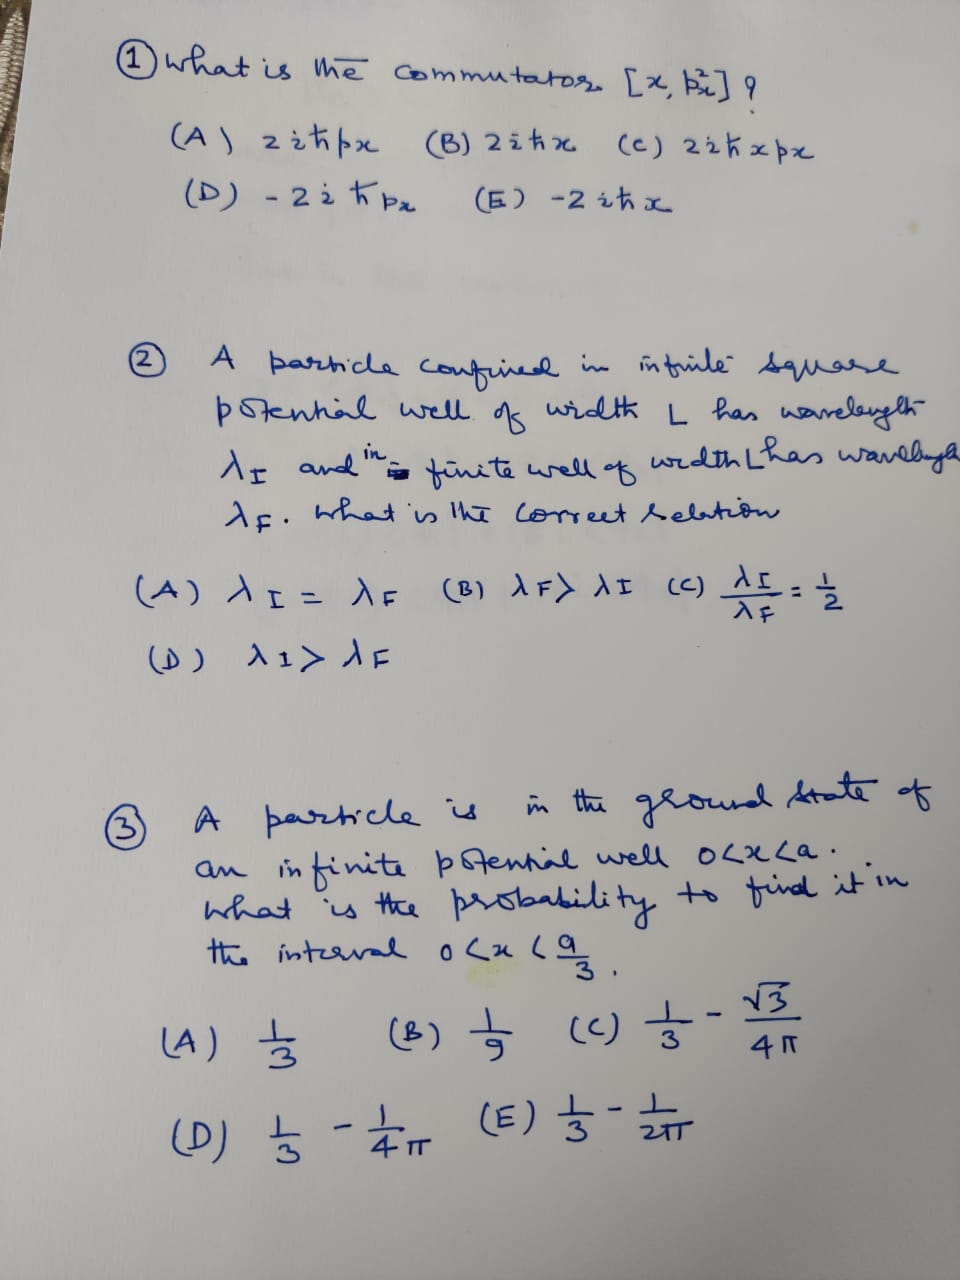 ① What is the commutator [x, pₓ²] ?
(A) 2iħpx (B) 2iħx (C) 2iħxpx
(D) -2iħpx (E) -2iħx
② A particle confined in infinite square
potential well of width L has wavelength
λI and in finite well of width L has wavelength
λF. What is the correct relation
(A) λI = λF (B) λF > λI (C) λI/λF = 1/2
(D) λI > λF
③ A particle is in the ground state of
an infinite potential well 0<x<a.
What is the probability to find it in
the interval 0<x<a/3.
(A) 1/3 (B) 1/9 (C) 1/3 - √3/4π
(D) 1/3 - 1/4π (E) 1/3 - 1/2π